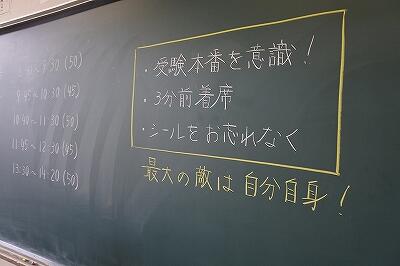 8:40〜9:30 (50)
9:45〜10:30 (45)
10:40〜11:30 (50)
11:45〜12:30 (45)
13:30〜14:20 (50)
・受験本番を意識!
・3分前着席
・シールをお忘れなく
最大の敵は自分自身!